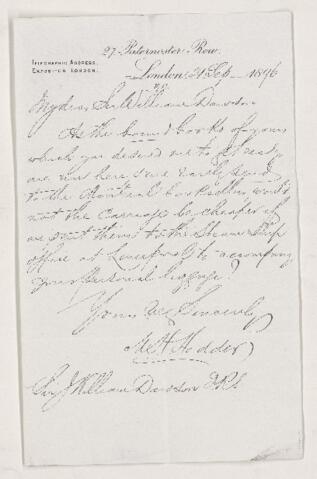 27, Paternoster Row,
TELEGRAPHIC ADDRESS,
EXPOSITOR LONDON.
London, 21 Sep 1896
My dear Sir William Dawson
As the bound books of yours
which you desired me to get ready
are now here and
to the Montreal booksellers wouldn't
not the Carriage be cheaper if
we sent them to the Steam Ship
office at Liverpool to accompany
your personal luggage?
Yours Sincerely
M H Hodder
Sir J William Dawson F.R.S.